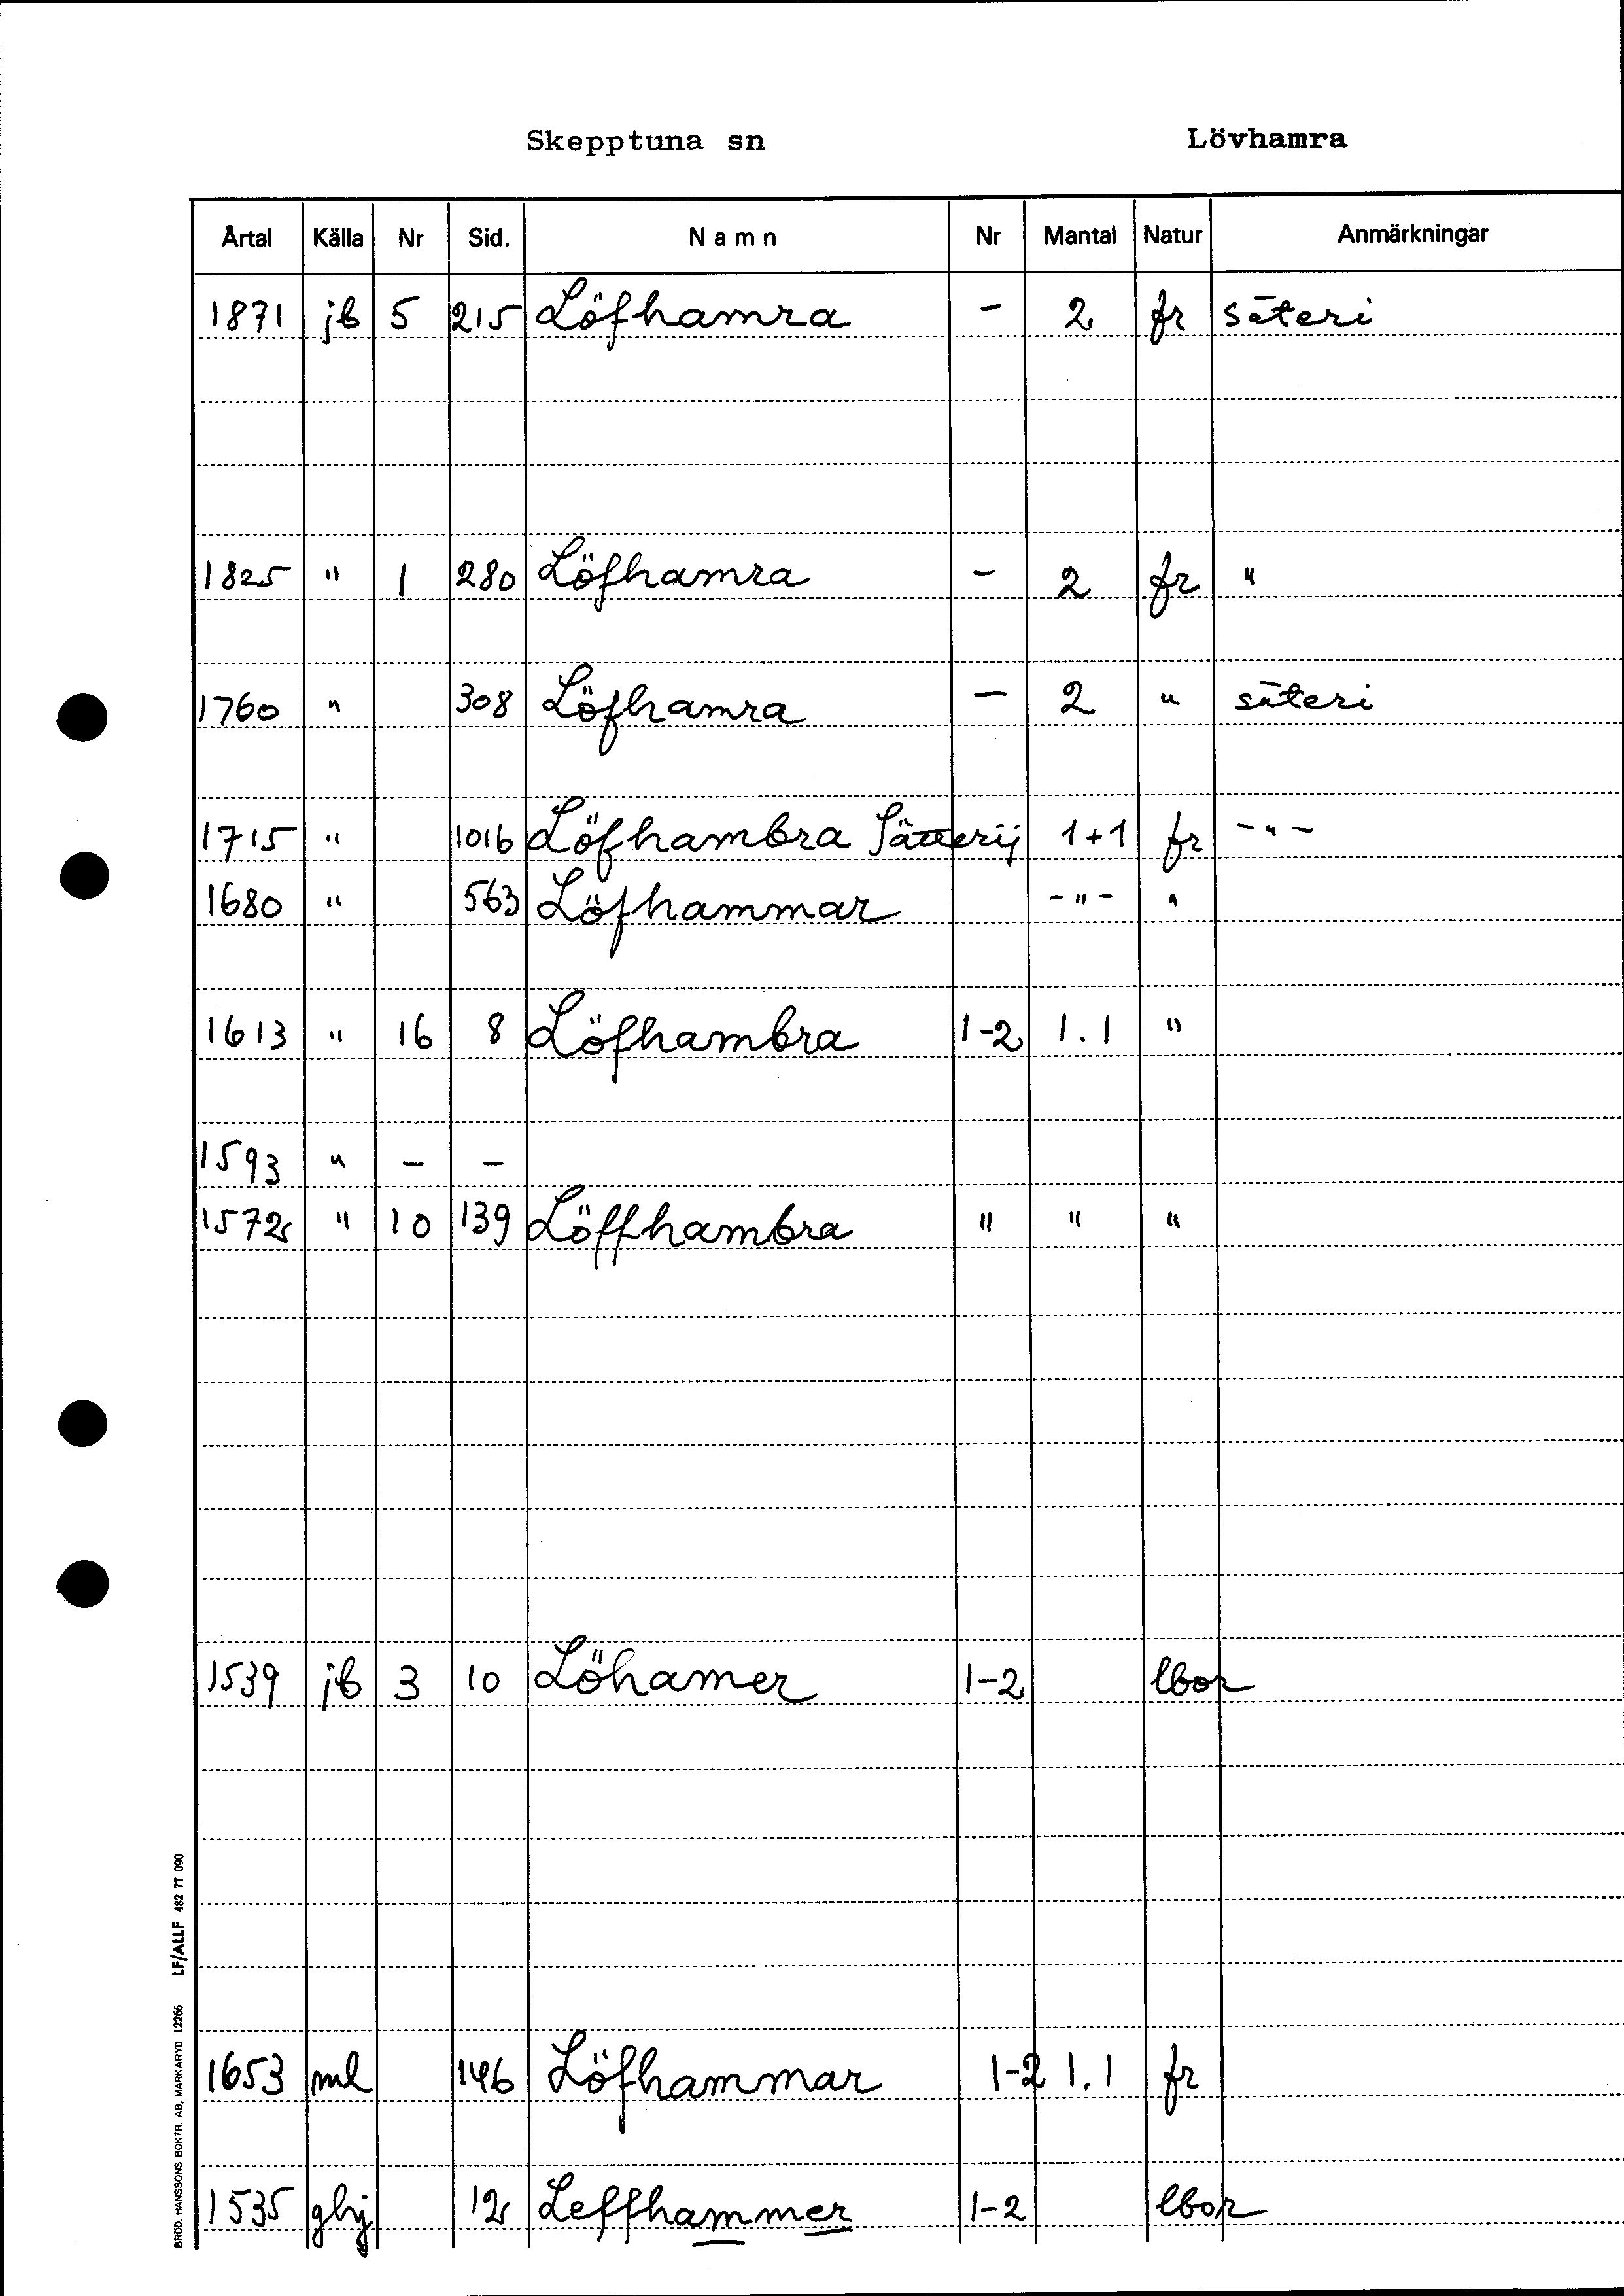 Skepptuna sn Lövhamra
Årtal Källa Nr Sid. Namn Nr Mantal Natur Anmärkningar
1871 jb 5 215 Löfhamra - 2 fr säteri
1825 " 1 280 Löfhamra - 2 fr "
1760 " 308 Löfhamra - 2 " säteri
1715 " 1016 Löfhambra Sätterij 1+1 fr -"-
1680 " 563 Löfhammar -"- "
1613 " 16 8 Löfhambra 1-2 1.1 "
1593 " - -
1572 " 10 139 Löffhambra " " "
1539 jb 3 10 Löhamer 1-2 lbor
1653 ml 146 Löfhammar 1-2 1.1 fr
1535 ghj 12 Leffhammer 1-2 lbor
BROD. HANSSONS BOKTR. AB, MARKARYD 12266 LF/ALLF 482 77 090